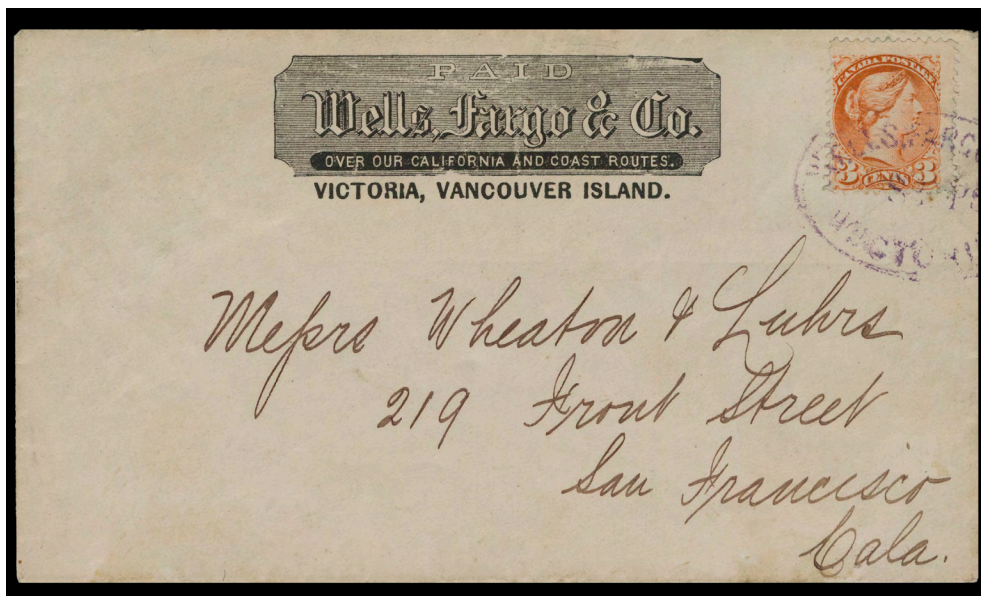 PAID
Wells, Fargo & Co.
OVER OUR CALIFORNIA AND COAST ROUTES.
VICTORIA, VANCOUVER ISLAND.
CANADA POSTAGE
3 CENTS 3
WELLS, FARGO
Messrs Wheaton & Luhrs
219 Front Street
San Francisco
Cala.